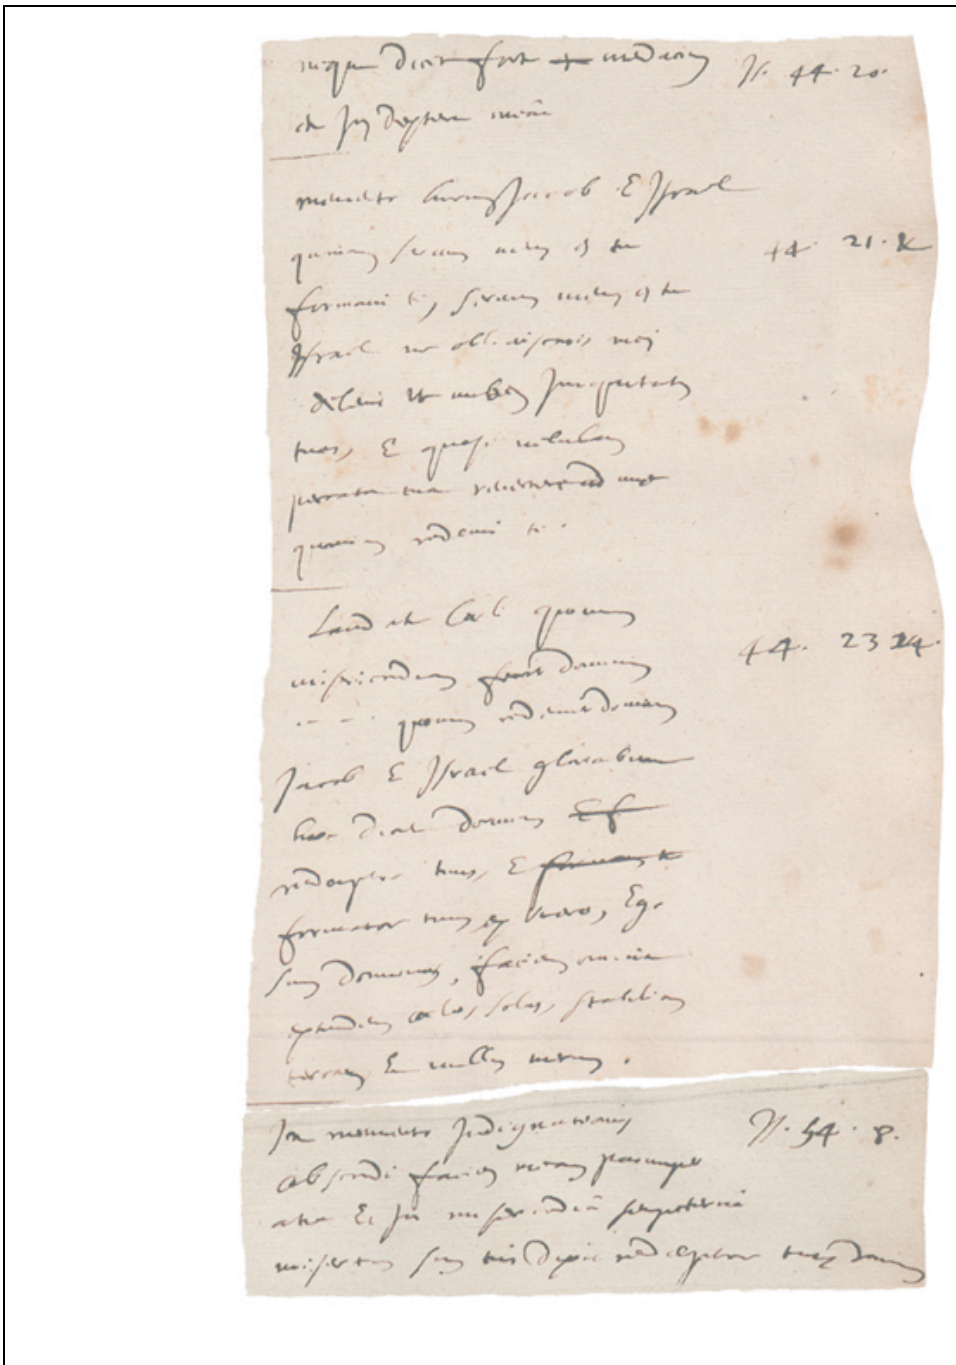 neque dicet fort mendacium Is. 44. 20.
in dextera mea
memento horum Jacob & Israel
quoniam servus meus es tu 44. 21. &
formavi te, servus meus es tu
Israel ne obliviscaris mei
delevi ut nubem iniquitates
tuas, & quasi nebulam
peccata tua revertere ad me
quoniam redemi te.
Laudate Caeli quoniam 44. 23 24.
misericordiam fecit dominus
- - - quoniam redemit dominus
Jacob & Israel gloriabitur
haec dicit dominus & f
redemptor tuus, & formans te
formator tuus ex utero, Ego
sum dominus, faciens omnia
extendens caelos, solus, stabiliens
terram & nullus mecum.
In momento Indignationis Is. 54. 8.
abscondi faciem meam parumper
a te & in misericordia sempiterna
misertus sum tui dixit redemptor tuus dominus